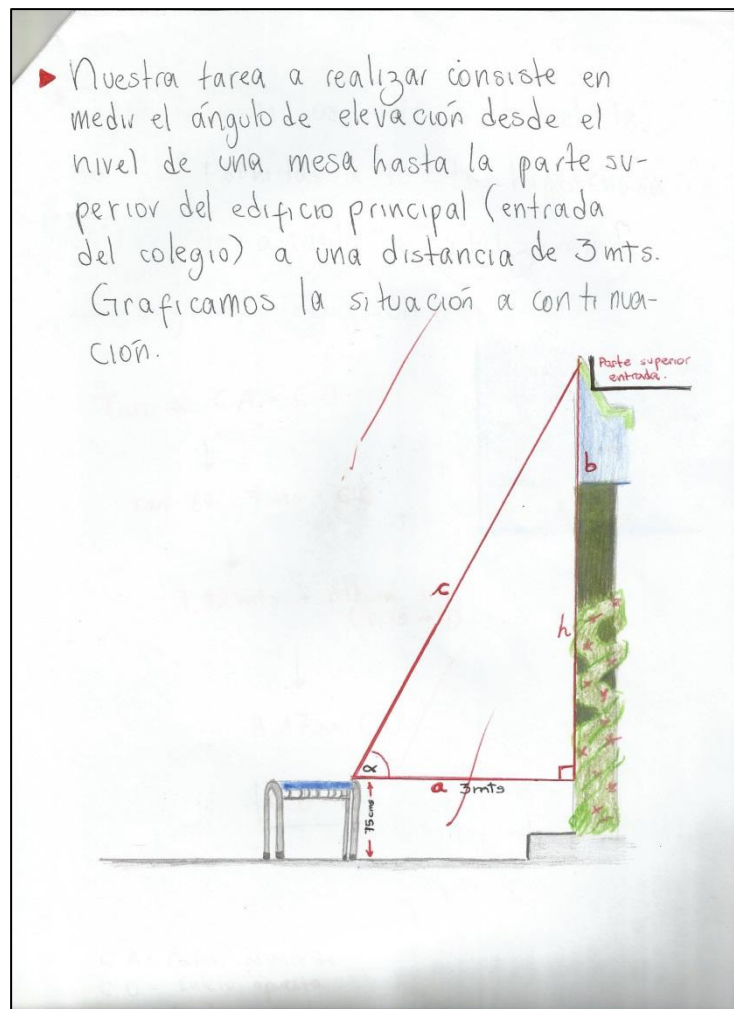 Nuestra tarea a realizar consiste en
medir el ángulo de elevación desde el
nivel de una mesa hasta la parte su-
perior del edificio principal (entrada
del colegio) a una distancia de 3 mts.
Graficamos la situación a continua-
ción.
Parte superior
entrada.
b
c
h
α
a 3mts
75 cms